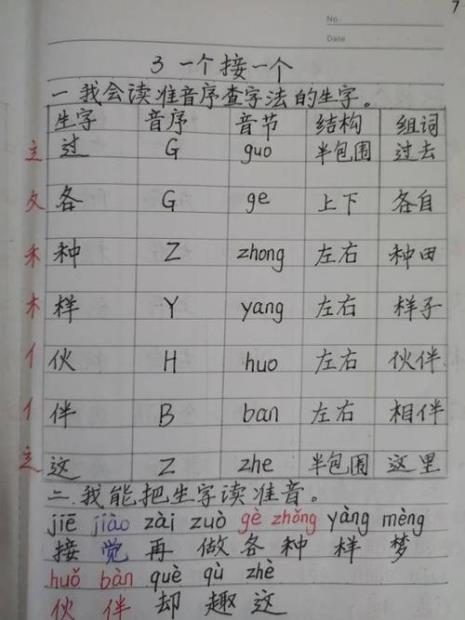 7
No.
Date
3 一个接一个
一 我会读准音序查字法的生字。
生字 音序 音节 结构 组词
过 G guo 半包围 过去
夂 各 G ge 上下 各自
禾 种 Z zhong 左右 种田
木 样 Y yang 左右 样子
亻 伙 H huo 左右 伙伴
亻 伴 B ban 左右 相伴
辶 这 Z zhe 半包围 这里
二.我能把生字读准音。
jiē jiào zài zuò gè zhǒng yàng mèng
接 觉 再 做 各 种 样 梦
huǒ bàn què qù zhè
伙 伴 却 趣 这